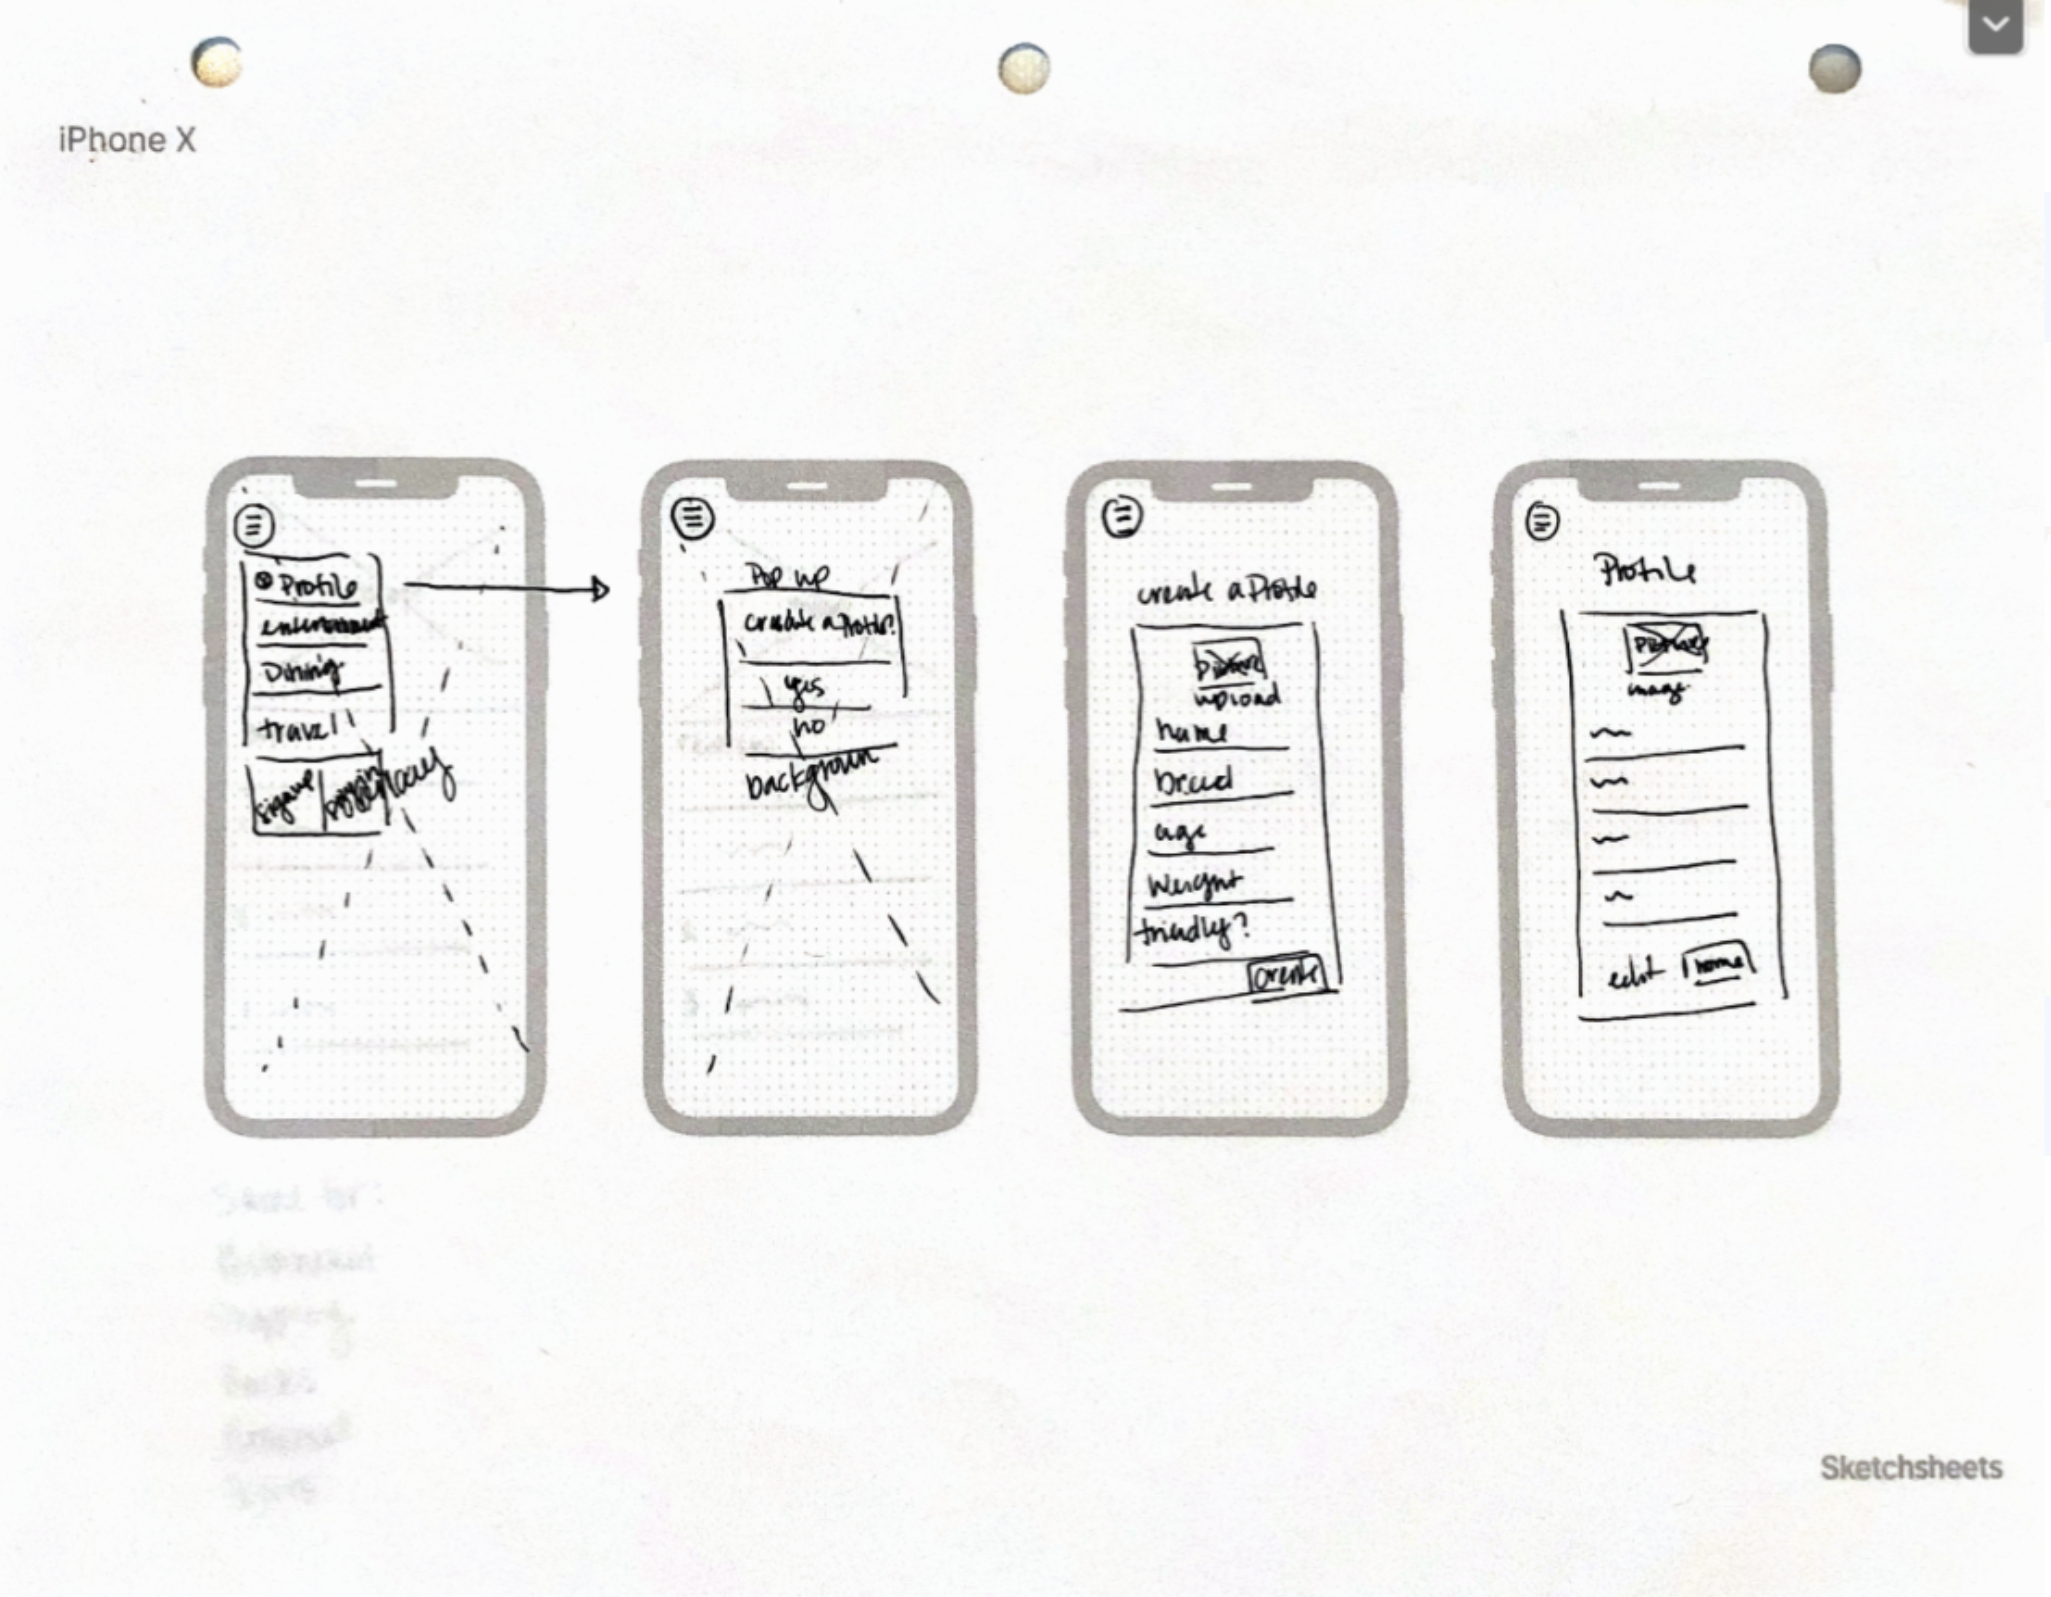 iPhone X
Profile
entertainment
Dining
travel
signup
Pop up
create a Profile?
yes
no
backgroun
create a Profile
Picture
upload
name
breed
age
Weight
friendly?
create
Profile
Picture
image
edit home
Sketchsheets